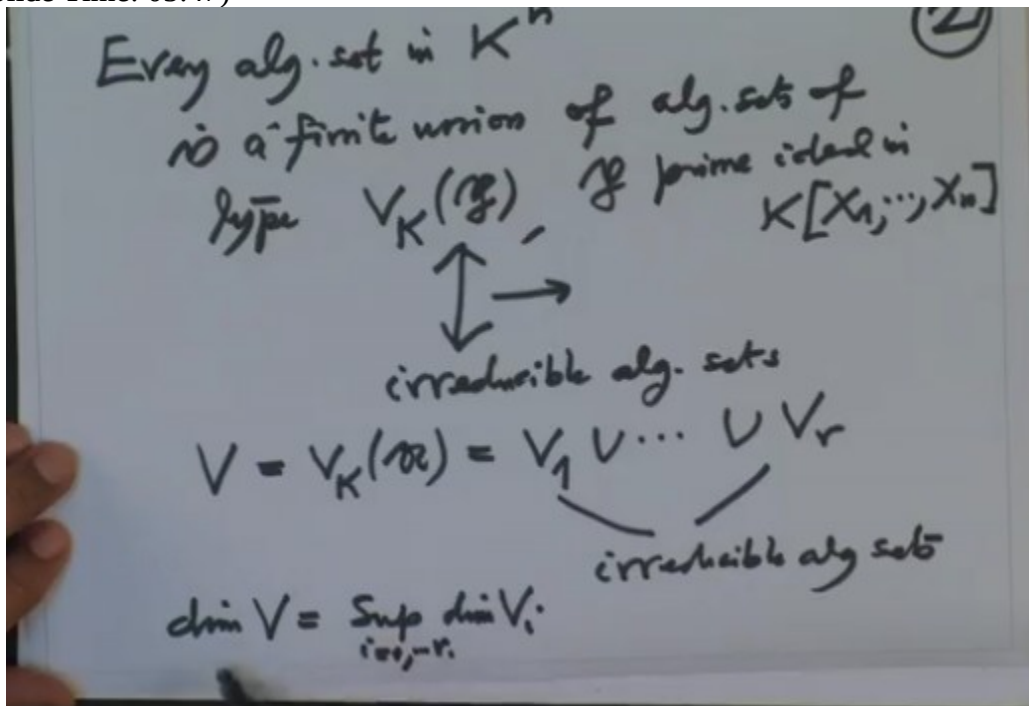 Every alg. set in Kⁿ
②
is a finite union of alg. sets of
type V_K(𝔭), 𝔭 prime ideal in
K[X₁,...,Xₙ]
irreducible alg. sets
V = V_K(𝔞) = V₁ ∪ ... ∪ Vᵣ
irreducible alg sets
dim V = Sup dim Vᵢ